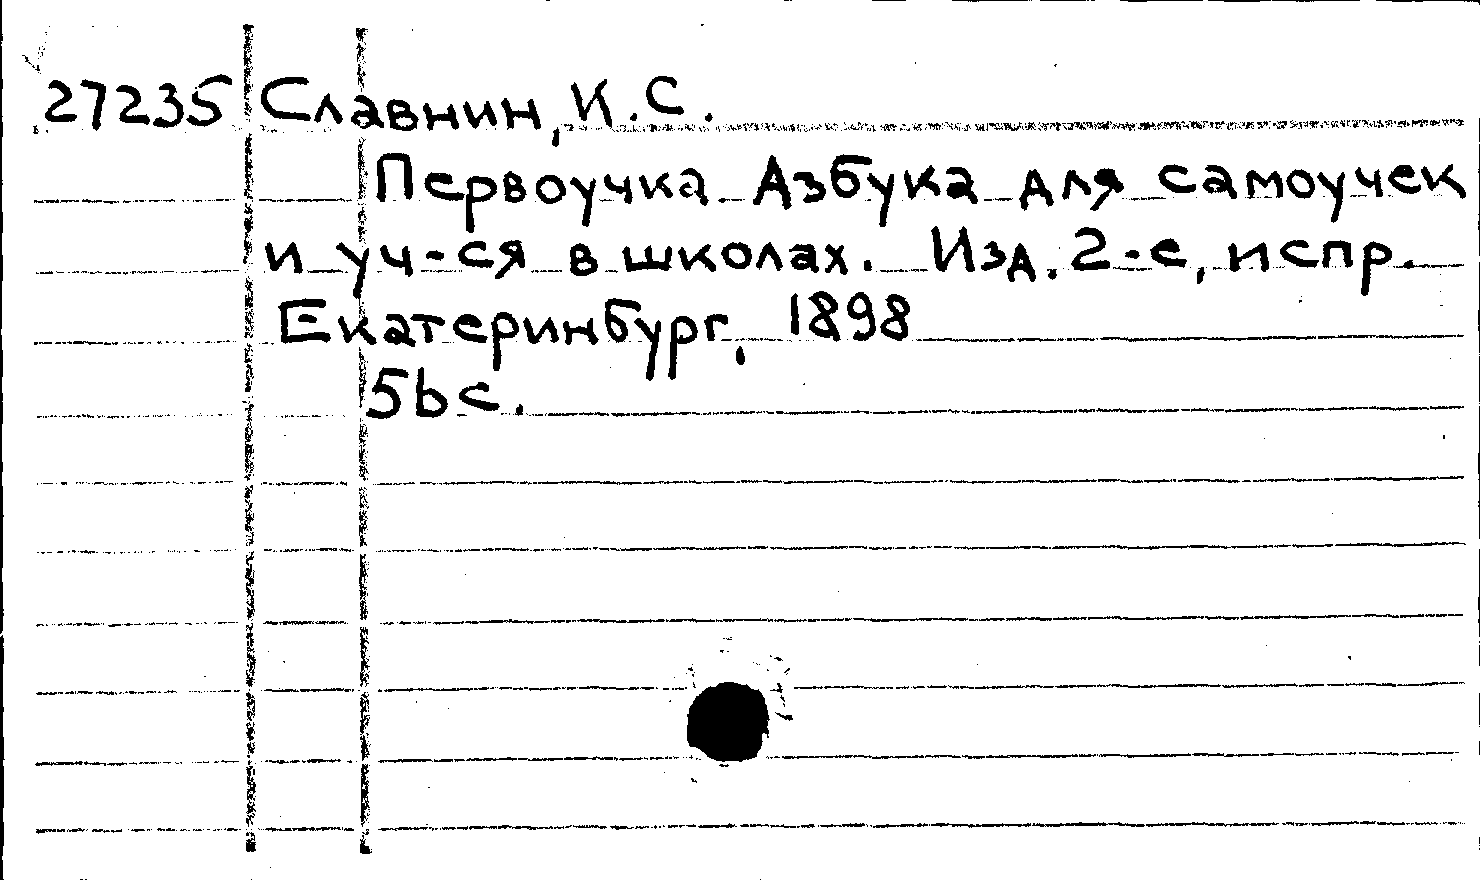 27235 Славнин, К.С.
Первоучка Азбука для самоучек
и уч-ся в школах. Изд. 2-е, испр.
Екатеринбург, 1898
56 с.